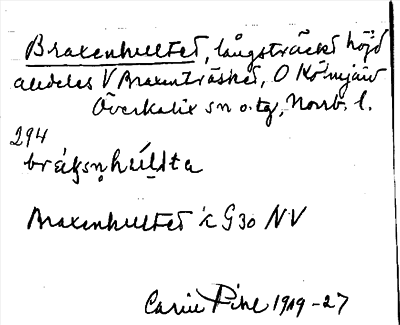 Braxenhultet, långsträckt höjd
alldeles V Braxenträsket, O Kölmjärv
Överkalix sn o. tg, Norrb. l.
294
Braxenhultet i G30 NV
Carin Pihl 1919-27